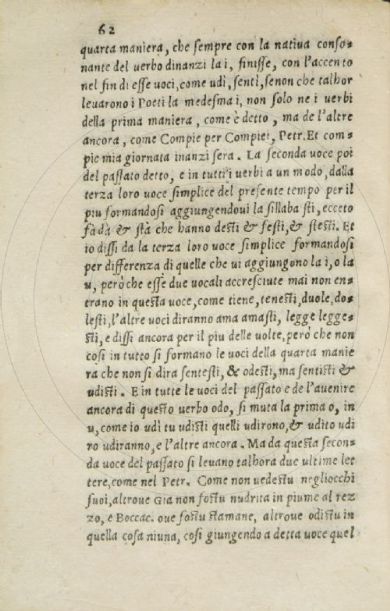 62
quarta maniera, che sempre con la natiua conso-
nante del uerbo dinanzi la i, finisse, con l'accento
nel fin di esse uoci, come udì, sentì, senon che talhor
leuarono i Poeti la medesma i, non solo ne i uerbi
della prima maniera, come è detto, ma de l'altre
ancora, come Compie per Compiei, Petr. Et com-
pie mia giornata inanzi sera. La seconda uoce poi
del passato detto, e in tutti i uerbi a un modo, dalla
terza loro uoce simplice del presente tempo per il
piu formandosi aggiungendoui la sillaba sti, ecceto
fà dà & stà che hanno desti & festi, & stesti. Et
io dissi da la terza loro uoce simplice formandosi
per differenza di quelle che ui aggiungono la i, o la
u, però che esse due uocali accresciute mai non en-
trano in questa uoce, come tiene, tenesti, duole, do-
lesti, l'altre uoci diranno ama amasti, legge legge-
sti, e dissi ancora per il piu delle uolte, però che non
cosi in tutto si formano le uoci della quarta manie
ra che non si dira sentesti, & odesti, ma sentisti &
udisti. E in tutte le uoci del passato e de l'auenire
ancora di questo uerbo odo, si muta la prima o, in
u, come io udì tu udisti quelli udirono, & udito udi
ro udiranno, e l'altre ancora. Ma da questa secon-
da uoce del passato si leuano talhora due ultime let
tere, come nel Petr. Come non uedestu negliocchi
suoi, altroue Gia non fostu nudrita in piume al rez
zo, e Boccac. oue fostu stamane, altroue odistu in
quella cosa niuna, cosi giungendo a detta uoce quel